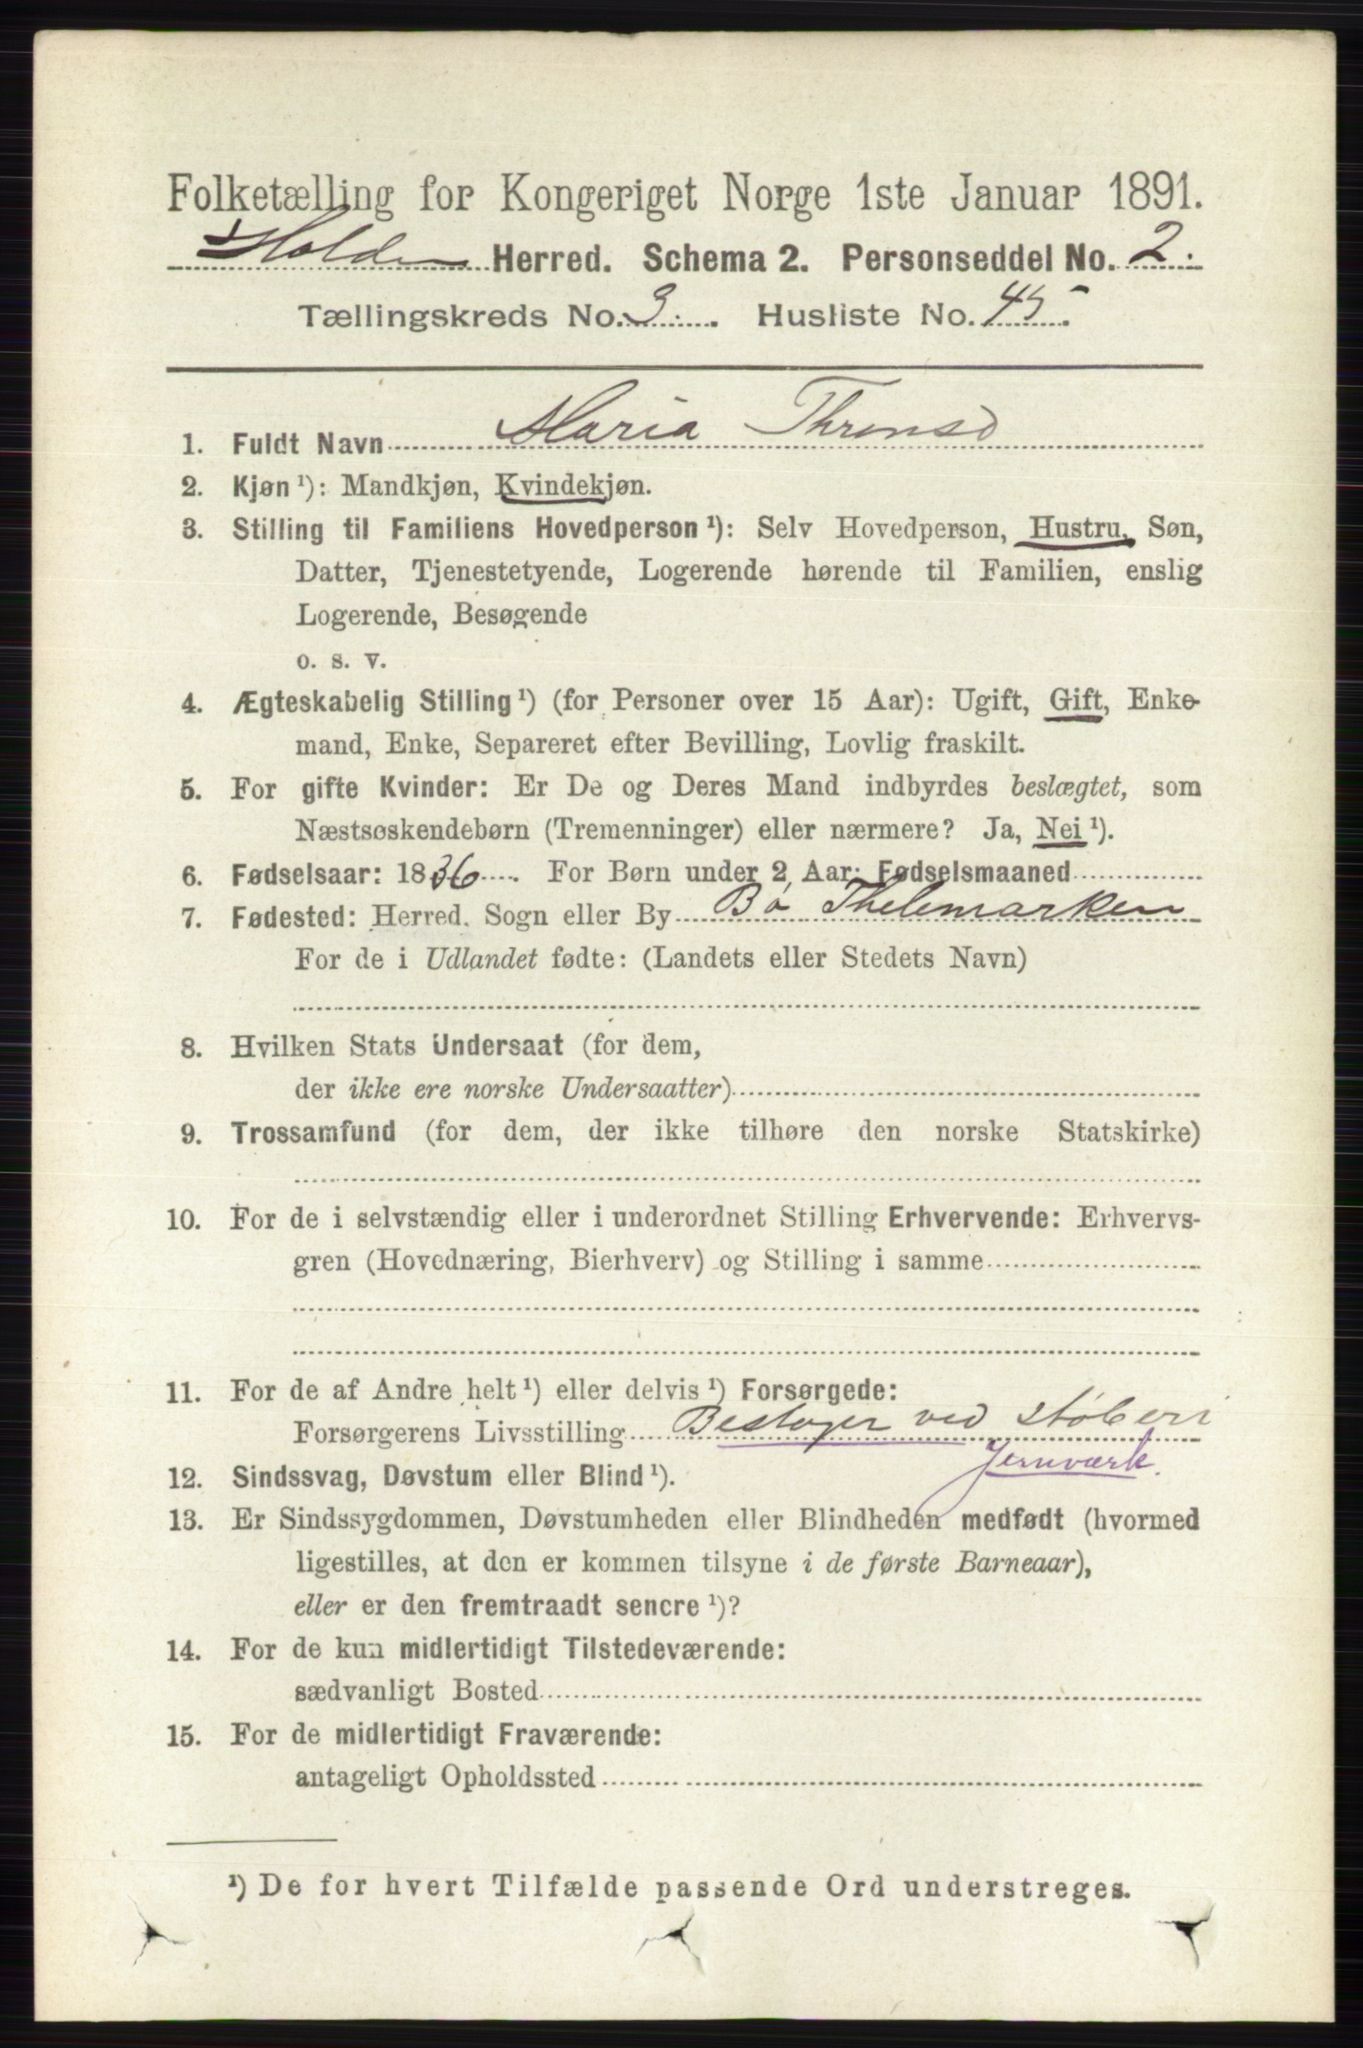 Folketælling for Kongeriget Norge 1ste Januar 1891.
Holden Herred. Schema 2. Personseddel No. 2.
Tællingskreds No. 3. Husliste No. 45.
1. Fuldt Navn Maria
2. Kjøn ¹): Mandkjøn, Kvindekjøn.
3. Stilling til Familiens Hovedperson ¹): Selv Hovedperson, Hustru, Søn,
Datter, Tjenestetyende, Logerende hørende til Familien, enslig
Logerende, Besøgende
o. s. v.
4. Ægteskabelig Stilling ¹) (for Personer over 15 Aar): Ugift, Gift, Enke-
mand, Enke, Separeret efter Bevilling, Lovlig fraskilt.
5. For gifte Kvinder: Er De og Deres Mand indbyrdes beslægtet, som
Næstsøskendebørn (Tremenninger) eller nærmere? Ja, Nei ¹).
6. Fødselsaar: 1836. For Børn under 2 Aar: Fødselsmaaned
7. Fødested: Herred, Sogn eller By Bø Thelemarken
For de i Udlandet fødte: (Landets eller Stedets Navn)
8. Hvilken Stats Undersaat (for dem,
der ikke ere norske Undersaatter)
9. Trossamfund (for dem, der ikke tilhøre den norske Statskirke)
10. For de i selvstændig eller i underordnet Stilling Erhvervende: Erhvervs-
gren (Hovednæring, Bierhverv) og Stilling i samme
11. For de af Andre helt ¹) eller delvis ¹) Forsørgede:
Forsørgerens Livsstilling ved Støberi
Jernværk.
12. Sindssvag, Døvstum eller Blind ¹).
13. Er Sindssygdommen, Døvstumheden eller Blindheden medfødt (hvormed
ligestilles, at den er kommen tilsyne i de første Barneaar),
eller er den fremtraadt senere ¹)?
14. For de kun midlertidigt Tilstedeværende:
sædvanligt Bosted
15. For de midlertidigt Fraværende:
antageligt Opholdssted
¹) De for hvert Tilfælde passende Ord understreges.